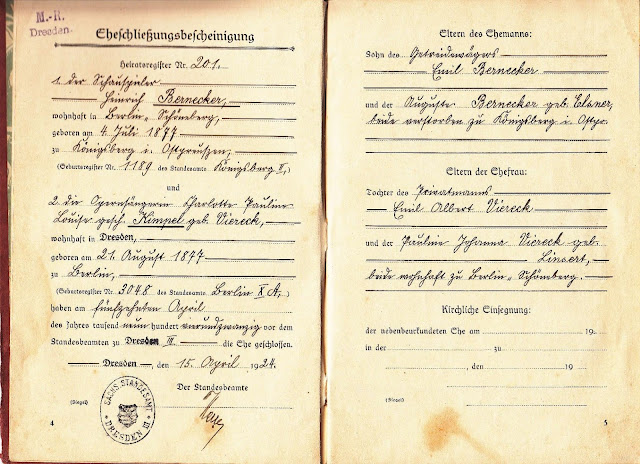 M.-R.
Dresden.
Eheschließungsbescheinigung
Heiratsregister Nr. 201.
1. der Schauspieler
Heinrich Bernecker,
wohnhaft in Berlin-Schömberg,
geboren am 4. Juli 1877
zu Königsberg i. Ostpreußen,
(Geburtsregister Nr. 1189 des Standesamts Königsberg II,)
und
2. die Opernsängerin Charlotte Pauline
Louise gesch. Kimpel geb. Viereck,
wohnhaft in Dresden,
geboren am 21. August 1877
zu Berlin,
(Geburtsregister Nr. 3048 des Standesamts Berlin X A,)
haben am fünfzehnten April
des Jahres tausend neun hundert vierundzwanzig vor dem
Standesbeamten zu Dresden III. die Ehe geschlossen.
Dresden, den 15. April 1924.
Der Standesbeamte
(Siegel)
SÄCHS. STANDESAMT
DRESDEN III
4
Eltern des Ehemanns:
Sohn des Getreidewägers
Emil Bernecker
und der Auguste Bernecker geb. Elsner,
beide verstorben zu Königsberg i. Ostpr.
Eltern der Ehefrau:
Tochter des Privatmanns
Emil Albert Viereck
und der Pauline Johanna Viereck geb.
Linsert,
beide wohnhaft zu Berlin-Schömberg.
Kirchliche Einsegnung:
der nebenbeurkundeten Ehe am 19
in der zu
, den 19
(Siegel)
5